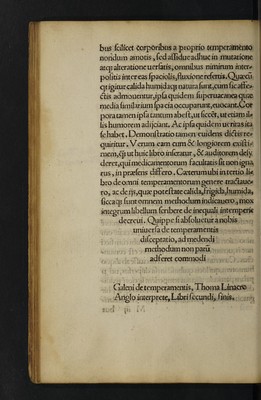 bus scilicet corporibus a proprio temperamento
nondum amotis, sed assidue adhuc in mutatione
atq; alteratione uersatis, omnibus nimirum inter-
positis inter eas spaciolis, fluxione refertis. Quæcũ
q; igitur calida humidaq; natura sunt, cum sic affe-
ctis admouentur, ipsa quidem superuacanea quæ
media similarium spatia occuparunt, euocant. Cor
pora tamen ipsa tantum abest, ut siccẽt, ut etiam il-
lis humorem adijciant. Ac ipsa quidem ueritas ita
se habet. Demonstratio tamen euidens dictis re-
quiritur. Verum eam cum & longiorem existi-
mem, ꝗ̃ ut huic libro inseratur, & auditorem desy
deret, qui medicamentorum facultatis sit non igna
rus, in præsens differo. Cæterum ubi in tertio li-
bro de omni temperamentorum genere tractaue-
ro, ac de ijs, quæ potestate calida, frigida, humida,
sicca q; sunt omnem methodum indicauero, mox
integrum libellum scribere de inequali intemperie
decreui. Quippe si absoluitur a nobis
uniuersa de temperamentis
disceptatio, ad medendi
methodum non parũ
adferet commodi
Galeni de temperamentis, Thoma Linacro
Anglo interprete, Libri secundi, finis.